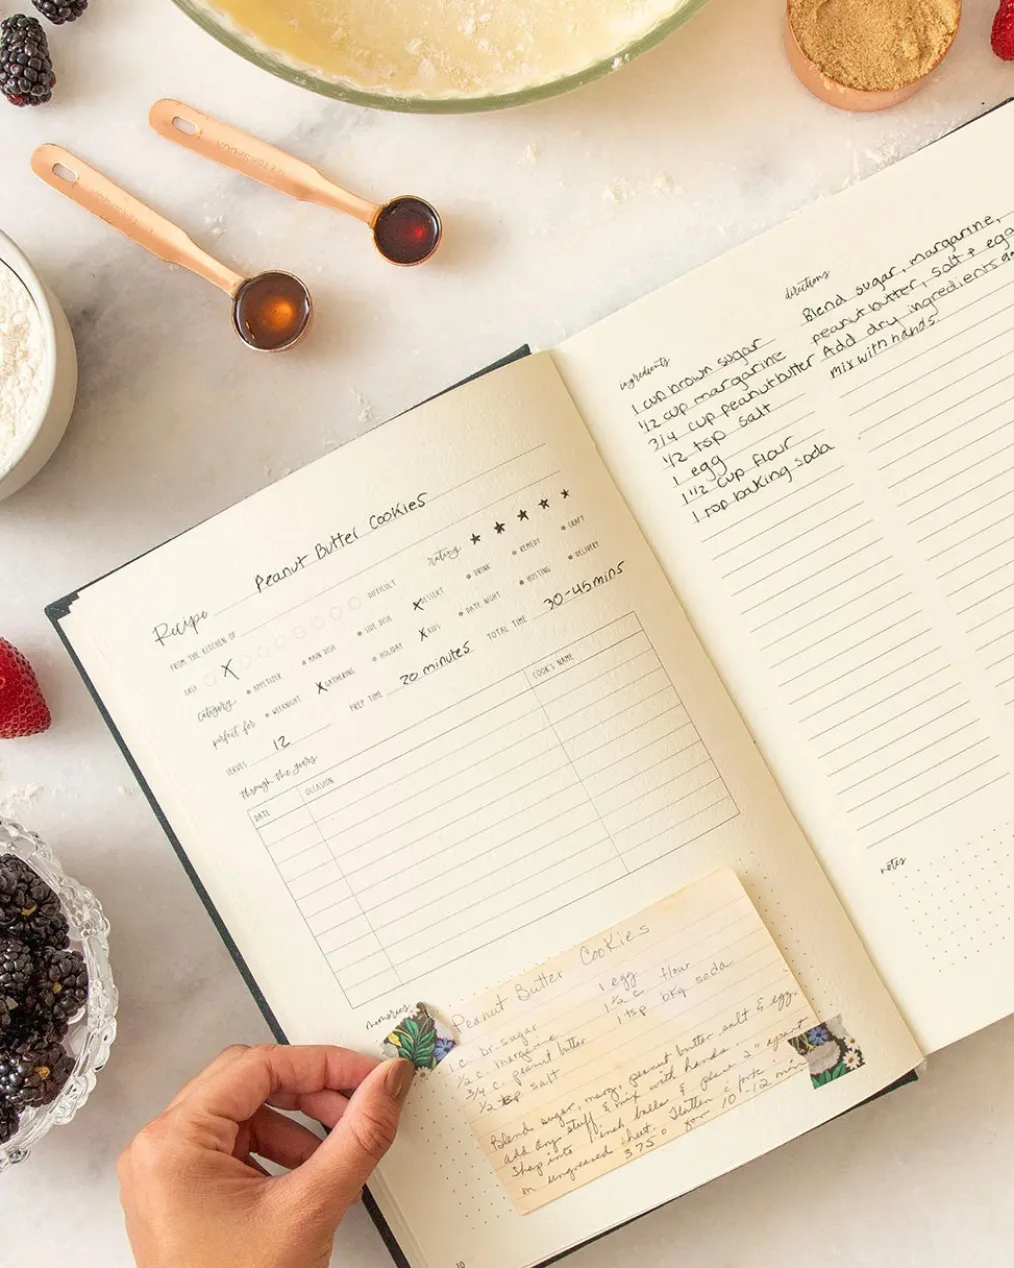 Recipe Peanut Butter Cookies
FROM THE KITCHEN OF
rating ★ ★ ★ ★ ★
EASY X DIFFICULT
category • APPETIZER • MAIN DISH • SIDE DISH X DESSERT • DRINK • REMEDY • CRAFT
perfect for • WEEKNIGHT X GATHERING • HOLIDAY X KIDS • DATE NIGHT • HOSTING • DELIVERY
SERVES 12 PREP TIME 20 minutes TOTAL TIME 30-45mins
through the years
DATE OCCASION COOK'S NAME
memories
Peanut Butter Cookies
1 c. br. sugar
1/2 c. margarine
3/4 c. peanut butter
1/2 tsp salt
1 egg
1 1/2 c flour
1 tsp bkg soda
Blend sugar, marg, peanut butter, salt & egg.
add dry stuff & mix with hands.
Shap into 1 inch balls & place 2" apart
on ungreased sheet. Flatten c fork
375° for 10-12 min
10
ingredients
1 cup brown sugar
1/2 cup margarine
3/4 cup peanut butter
1/2 tsp salt
1 egg
1 1/2 cup flour
1 tsp baking soda
directions
Blend sugar, margarine,
peanut butter, salt + egg
Add dry ingredients
mix with hands.
notes